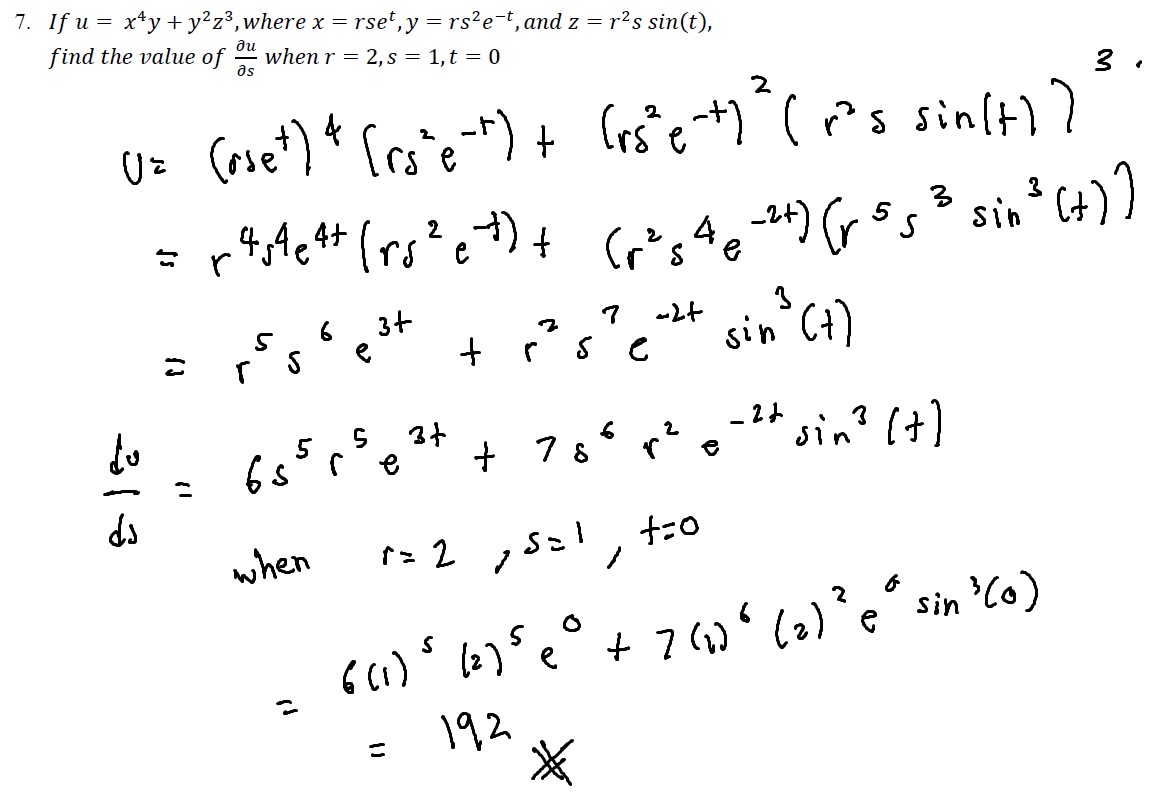 7. If u = x⁴y + y²z³, where x = rseᵗ, y = rs²e⁻ᵗ, and z = r²s sin(t),
find the value of ∂u/∂s when r = 2, s = 1, t = 0
U = (rseᵗ)⁴ (rs²e⁻ᵗ) + (rs²e⁻ᵗ)² (r²s sin(t))³.
= r⁴s⁴e⁴ᵗ (rs²e⁻ᵗ) + (r²s⁴e⁻²ᵗ) (r⁵s³ sin³(t))
= r⁵s⁶e³ᵗ + r²s⁷e⁻²ᵗ sin³(t)
du/ds = 6s⁵r⁵e³ᵗ + 7s⁶r²e⁻²ᵗ sin³(t)
when r = 2, s = 1, t = 0
= 6(1)⁵ (2)⁵ e⁰ + 7(1)⁶ (2)² e⁰ sin³(0)
= 192